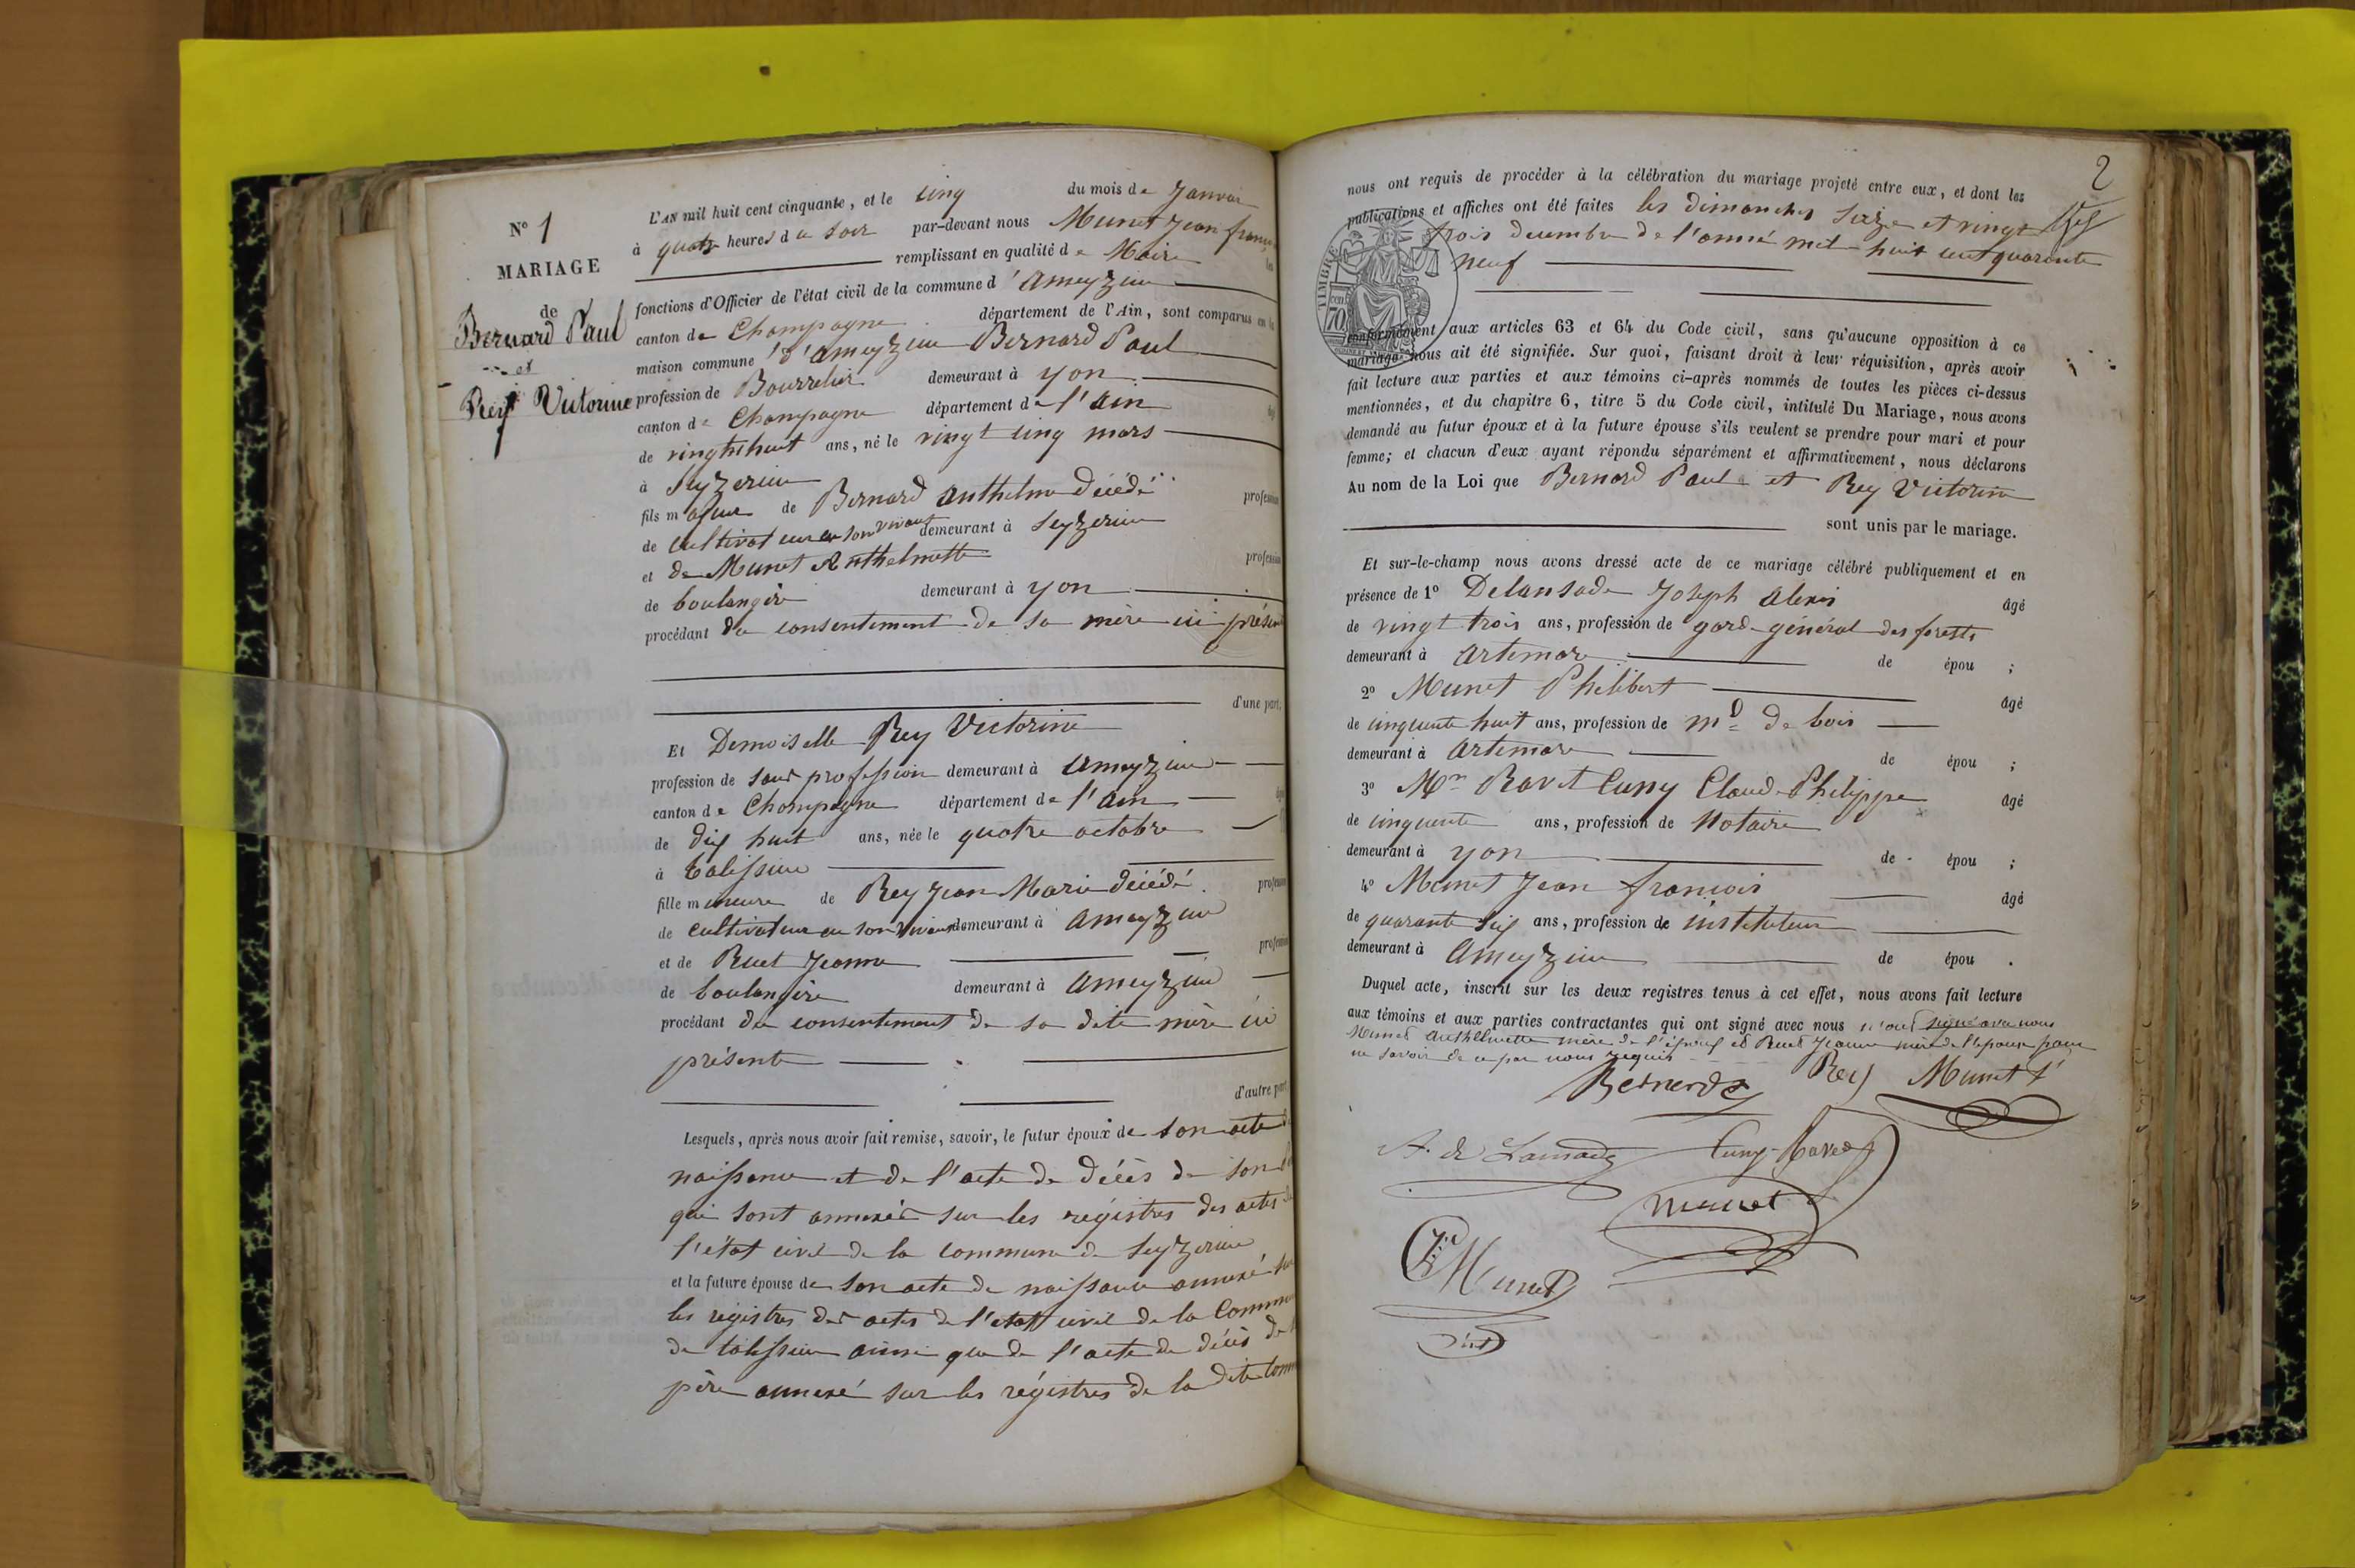 N° 1
MARIAGE
de
Bernard Paul
et
Rey Victorine
L'AN mil huit cent cinquante, et le cinq du mois de Janvier
à quatre heures du soir par-devant nous Munet Jean franç
remplissant en qualité de Maire les
fonctions d'Officier de l'état civil de la commune d'Ameyzieu
canton de Champagne département de l'Ain, sont comparus en la
maison commune d'Ameyzieu Bernard Paul
profession de Bourrelier demeurant à yon
canton de Champagne département de l'ain âgé
de vingt huit ans, né le vingt cinq mars
à Seyzerieu
fils majeur de Bernard Anthelme décédé profession
de cultivateur en son vivant demeurant à Seyzerieu
et de Munet Anthelmette profession
de boulangère demeurant à yon
procédant du consentement de sa mère ici présente
d'une part,
Et Demoiselle Rey Victorine
profession de sans profession demeurant à Ameyzieu
canton de Champagne département de l'ain
de dix huit ans, née le quatre octobre
à talissieu
fille mineure de Rey Jean Marie décédé profession
de cultivateur en son vivant demeurant à Ameyzieu
et de Ruet Jeanne profession
de boulangère demeurant à Ameyzieu
procédant du consentement de sa dite mère ici
présente
d'autre part
Lesquels, après nous avoir fait remise, savoir, le futur époux de son acte de
naissance et de l'acte de décès de son
qui sont annexés sur les régistres des actes de
l'état civil de la commune de Seyzerieu
et la future épouse de son acte de naissance annexé sur
les régistres des actes de l'etat civil de la Commune
de talissieu ainsi que de l'acte de décès de
père annexé sur les régistres de la dite Comm
2
nous ont requis de procéder à la célébration du mariage projeté entre eux, et dont les
publications et affiches ont été faites les dimanches seize et vingt
trois decembre de l'année mil huit cent quarante
neuf
TIMBRE
70 cent
conformément aux articles 63 et 64 du Code civil, sans qu'aucune opposition à ce
mariage nous ait été signifiée. Sur quoi, faisant droit à leur réquisition, après avoir
fait lecture aux parties et aux témoins ci-après nommés de toutes les pièces ci-dessus
mentionnées, et du chapitre 6, titre 5 du Code civil, intitulé Du Mariage, nous avons
demandé au futur époux et à la future épouse s'ils veulent se prendre pour mari et pour
femme; et chacun d'eux ayant répondu séparément et affirmativement, nous déclarons
Au nom de la Loi que Bernard Paul et Rey Victorine
sont unis par le mariage.
Et sur-le-champ nous avons dressé acte de ce mariage célébré publiquement et en
présence de 1° Delansade Joseph Alexis âgé
de vingt trois ans, profession de garde général des forests
demeurant à Artemare de épou ;
2° Munet Philibert âgé
de cinquante huit ans, profession de md de bois
demeurant à Artemare de épou ;
3° Mr Ravet Cuny Claude Philippe âgé
de cinquante ans, profession de Notaire
demeurant à yon de épou ;
4° Munet Jean françois âgé
de quarante six ans, profession de instituteur
demeurant à Ameyzieu de épou .
Duquel acte, inscrit sur les deux registres tenus à cet effet, nous avons fait lecture
aux témoins et aux parties contractantes qui ont signé avec nous n'ont signé avec nous
Munet Anthelmette mère de l'époux et Ruet Jeanne mère de l'épouse pour
ne savoir de ce par nous requis
Bernerd Rey Munet
A. de Lansade Cuny Ravet
Munet
Munet